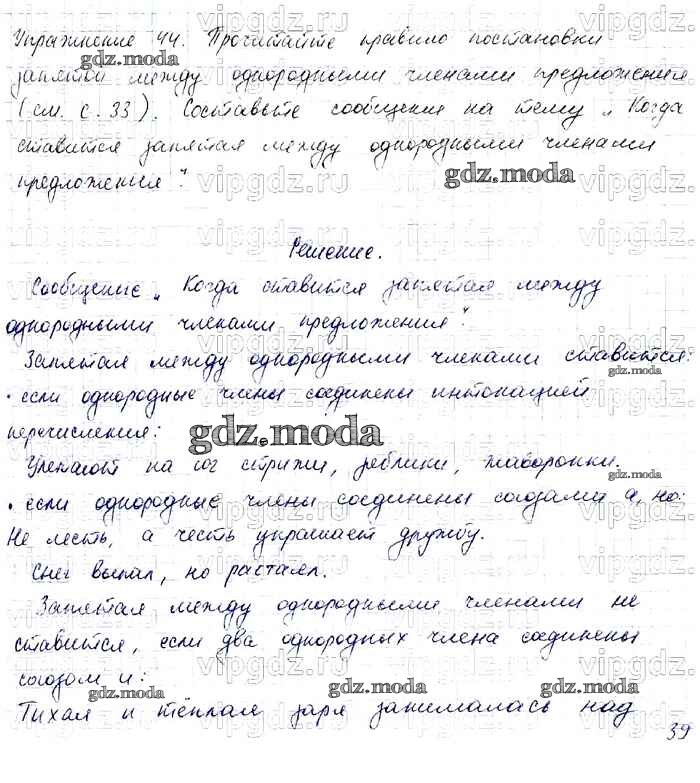 Упражнение 44. Прочитайте правило постановки
запятой между однородными членами предложения
(см. с. 33). Составьте сообщение на тему „Когда
ставится запятая между однородными членами
предложения".
Решение.
Сообщение „Когда ставится запятая между
однородными членами предложения".
Запятая между однородными членами ставится:
• если однородные члены соединены интонацией
перечисления:
Улетают на юг стрижи, зяблики, жаворонки.
• если однородные члены соединены союзами а, но:
Не лесть, а честь украшает дружбу.
Снег выпал, но растаял.
Запятая между однородными членами не
ставится, если два однородных члена соединены
союзом и:
Тихая и тёплая заря занималась над
39
gdz.moda
vipgdz.ru